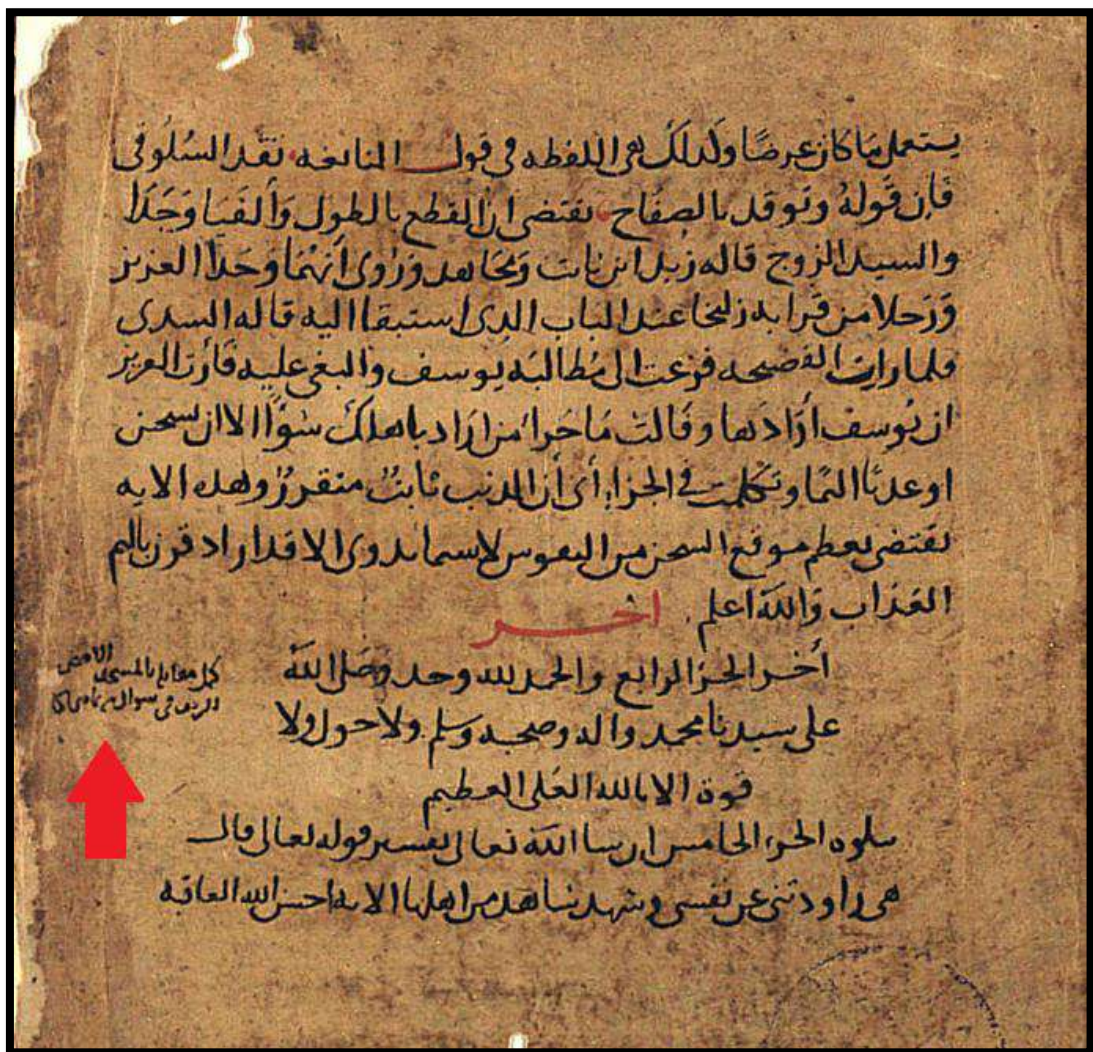 يستعمل ما كان عرضا ولذلك هي اللفظه في قول النابغه تقد السلوقي
فإن قوله وتوقد بالصفاح يقتضي ان القطع بالطول وألفيا وجدا
والسيد الزوج قاله زيد ابن ثابت ومجاهد وروى أنهما وجدا العزيز
ورجلا من قرابه زليخا عند الباب الذي استبقا اليه قاله السدي
فلما رات الفضيحه فزعت الى مطالبة يوسف والبغي عليه فأرت العزيز
ان يوسف أرادها وقالت ما جزاء من اراد باهلك سوءا الا ان يسجن
او عذابا اليما وتكلمت في الجزاء أي أن الذنب ثابت متقرر وهذه الايه
تقتضي بعظم موقع السجن من النفوس لا سيما بذوي الاقدار اذ قرن باليم
العذاب والله اعلم اخر
أخر الجزء الرابع والحمد لله وحده وصلى الله
على سيدنا محمد واله وصحبه وسلم ولا حول ولا
قوة الا بالله العلي العظيم
يتلوه الجزء الخامس ان شا الله تعالى تفسير قوله تعالى قال
هي راودتني عن نفسي وشهد شاهد من اهلها الايه احسن الله العاقبه
بالمسجد الاقصى
الشريف في شوال